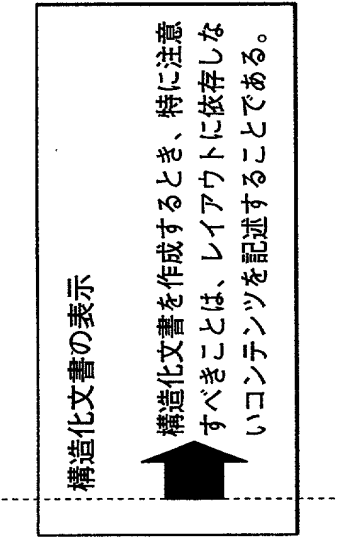 構造化文書の表示
構造化文書を作成するとき、特に注意
すべきことは、レイアウトに依存しな
いコンテンツを記述することである。